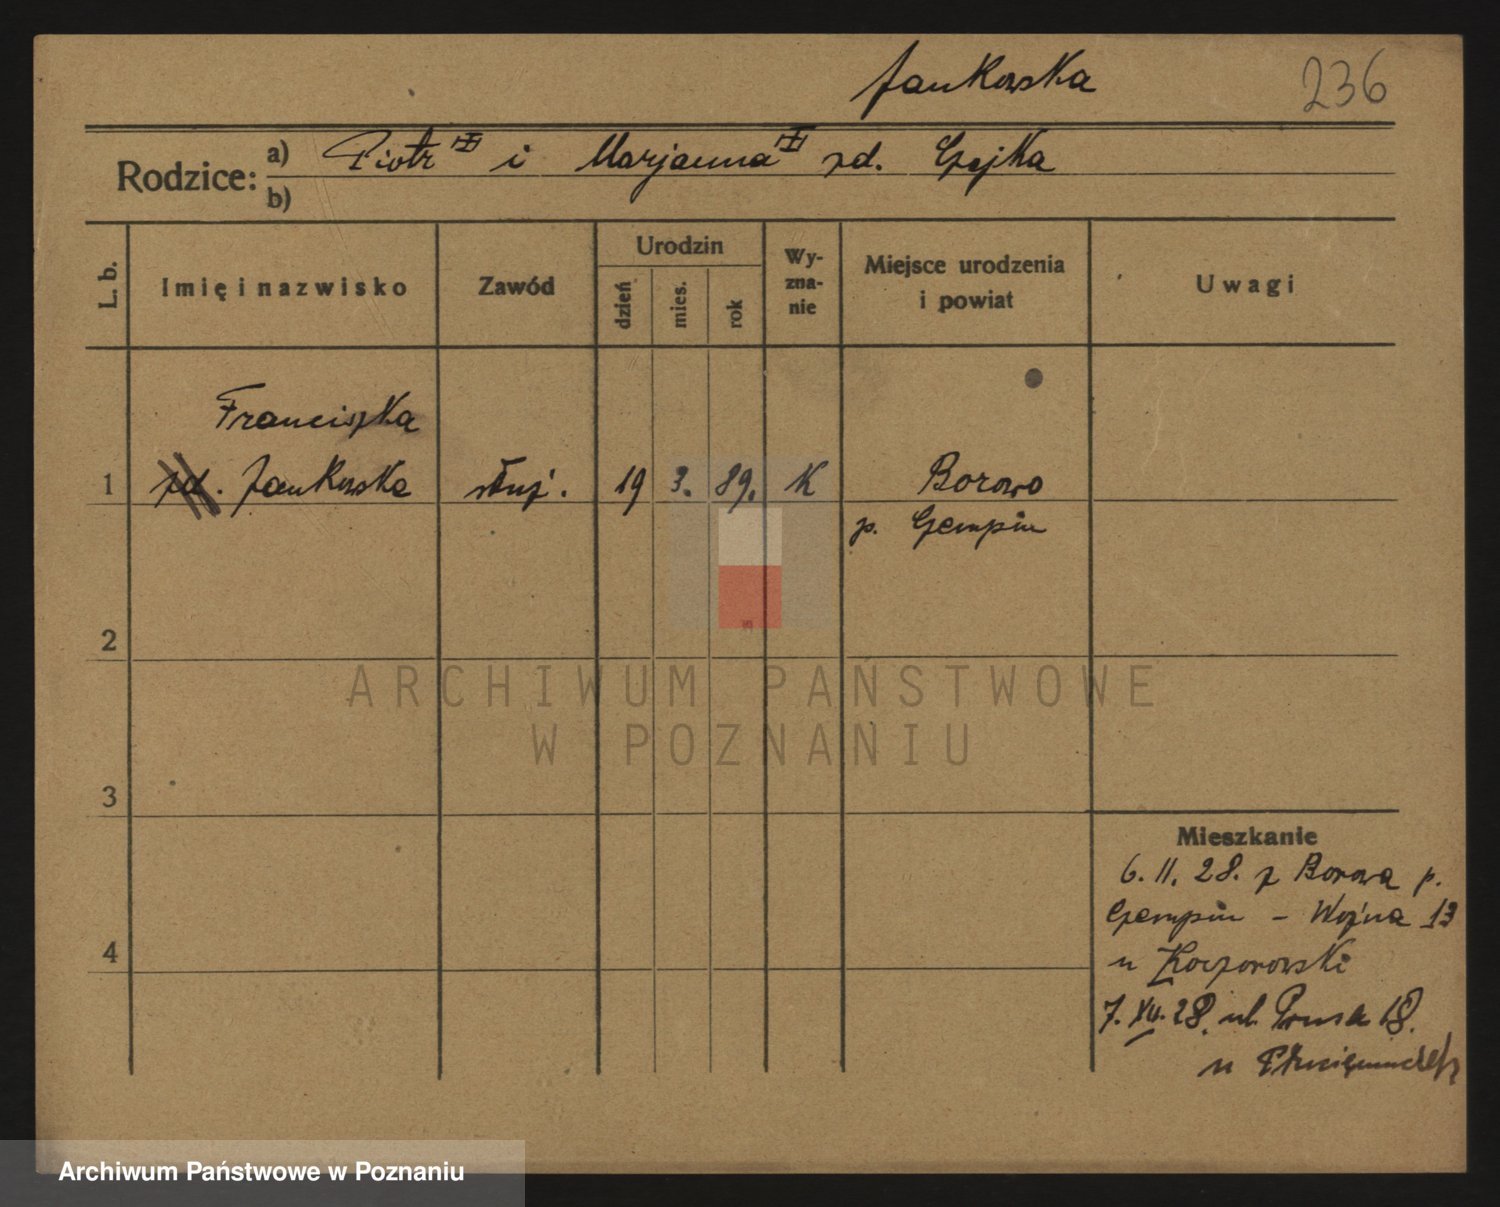 Jankowska 236
Rodzice: a) Piotr i Marjanna zd. Czajka
b)
L. b. Imię i nazwisko Zawód Urodzin dzień mies. rok Wyznanie Miejsce urodzenia i powiat Uwagi
Franciszka
1 zd. Jankowska służ. 19 3. 89. K Borowo
p. Czempiń
2
ARCHIWUM PAŃSTWOWE
W POZNANIU
3
Mieszkanie
6. II. 28. z Borowa p.
Czempiń - Woźna 13
u Kaczorowski
4
7. XII. 28. ul. Prusa 18.
u
Archiwum Państwowe w Poznaniu